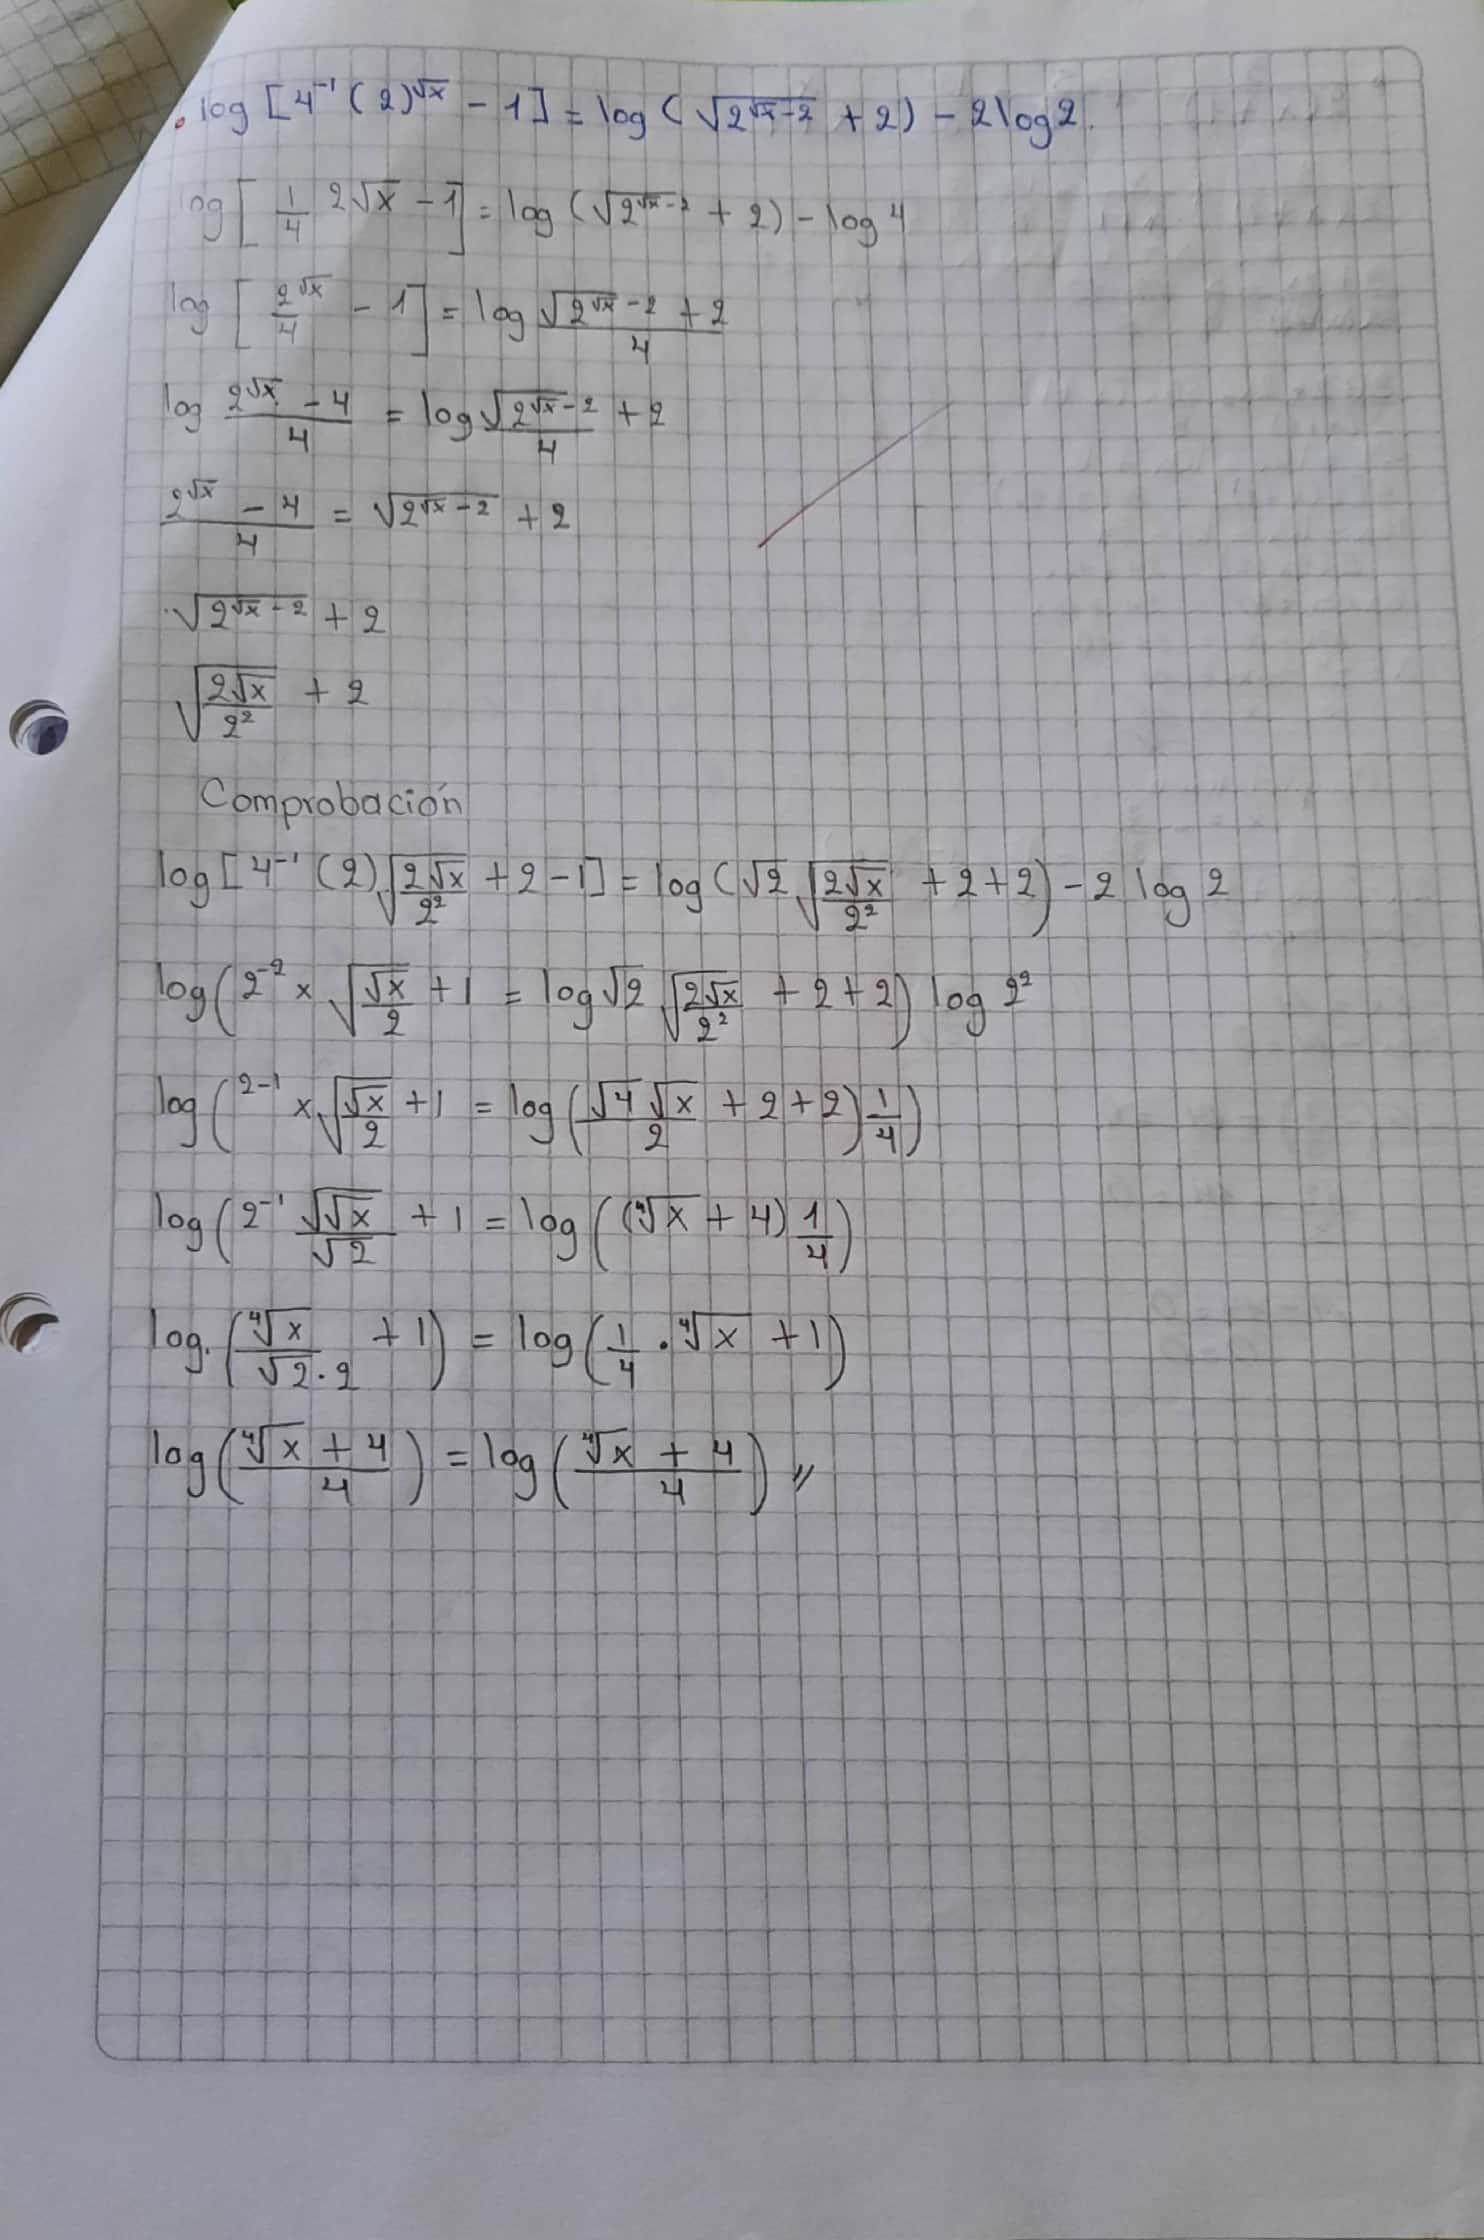 log [4⁻¹ (2)^√x - 1] = log (√(2^(√x-2)) + 2) - 2 log 2.
log [1/4 2√x - 1] = log (√(2^(√x-2)) + 2) - log 4
log [2^√x/4 - 1] = log (√(2^√x-2) + 2)/4
log (2^√x - 4)/4 = log √(2^√x-2)/4 + 2
(2^√x - 4)/4 = √(2^(√x-2)) + 2
√(2^(√x-2)) + 2
√(2√x/2²) + 2
Comprobación
log [4⁻¹ (2) √(2√x/2²) + 2 - 1] = log (√2 √(2√x/2²) + 2 + 2) - 2 log 2
log (2⁻² x √(√x/2) + 1 = log √2 √(2√x/2²) + 2 + 2) log 2²
log (2⁻¹ x √(√x/2) + 1 = log (√4 √x/2 + 2 + 2) 1/4)
log (2⁻¹ √√x/√2 + 1 = log ((⁴√x + 4) 1/4)
log. (⁴√x/(√2 · 2) + 1) = log (1/4 · ⁴√x + 1)
log ((⁴√x + 4)/4) = log ((⁴√x + 4)/4) //